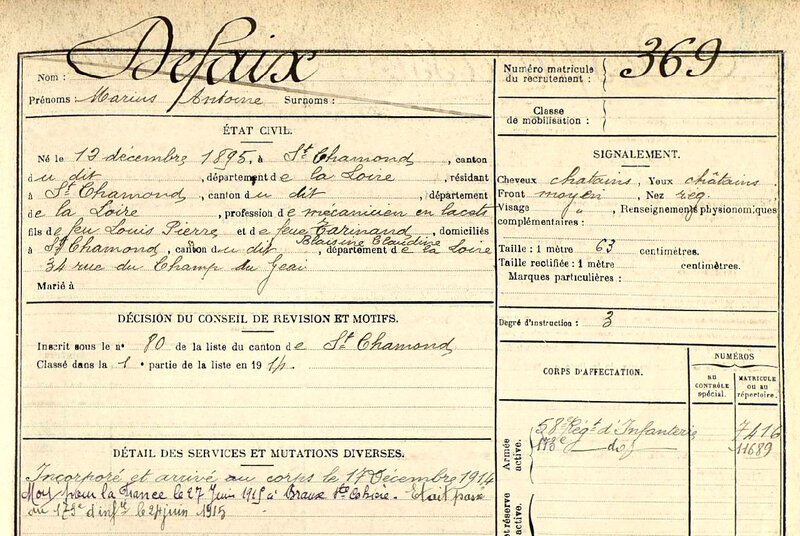 Nom : Defaix
Prénoms : Marius Antoine Surnoms :
ÉTAT CIVIL.
Né le 12 décembre 1895, à St Chamond, canton
du dit, département de la Loire, résidant
à St Chamond, canton du dit, département
de la Loire, profession de mécanicien en lacets
fils de feu Louis Pierre et de feue Carinand, domiciliés
Blaisine Claudine
à St Chamond, canton du dit, département de la Loire
34 rue du Champ du Geai
Marié à
DÉCISION DU CONSEIL DE REVISION ET MOTIFS.
Inscrit sous le n° 80 de la liste du canton de St Chamond
Classé dans la 1e partie de la liste en 1914.
DÉTAIL DES SERVICES ET MUTATIONS DIVERSES.
Incorporé et arrivé au corps le 17 Décembre 1914
Mort pour la France le 27 Juin 1915 à Braux Ste Cohière. Etait passé
au 173e d'infie le 24 juin 1915
Numéro matricule
du recrutement : 369
Classe
de mobilisation :
SIGNALEMENT.
Cheveux chatains, Yeux châtains
Front moyen, Nez rég.
Visage ", Renseignements physionomiques
complémentaires :
Taille : 1 mètre 63 centimètres.
Taille rectifiée : 1 mètre centimètres.
Marques particulières :
Degré d'instruction : 3
CORPS D'AFFECTATION.
NUMÉROS
AU CONTRÔLE spécial.
MATRICULE OU AU répertoire.
Armée active.
58e Régt d'Infanterie 7416
173e do 11689
et réserve
active.